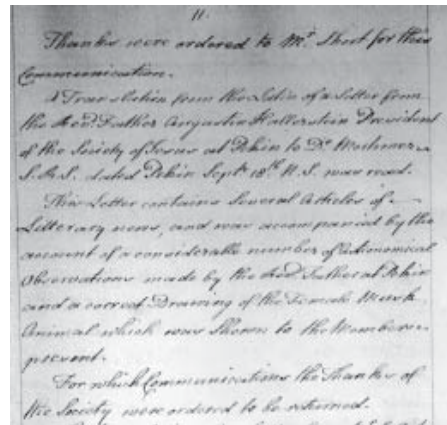 11.
Thanks were ordered to Mr. Short for this
Communication.
A Translation from the Latin of a Letter from
the Revd. Father Augustin Hallerstein President
of the Society of Jesus at Pekin to Dr. Mortimer
S.R.S. dated Pekin Septr. 18th N.S. was read.
This Letter contains Several Articles of
Litterary news, and was accompanied by the
account of a considerable number of Astronomical
Observations made by the Revd. Father at Pekin
and a correct Drawing of the Female Musk
Animal which was Shown to the Members
present.
For which Communications the Thanks of
the Society were ordered to be returned.